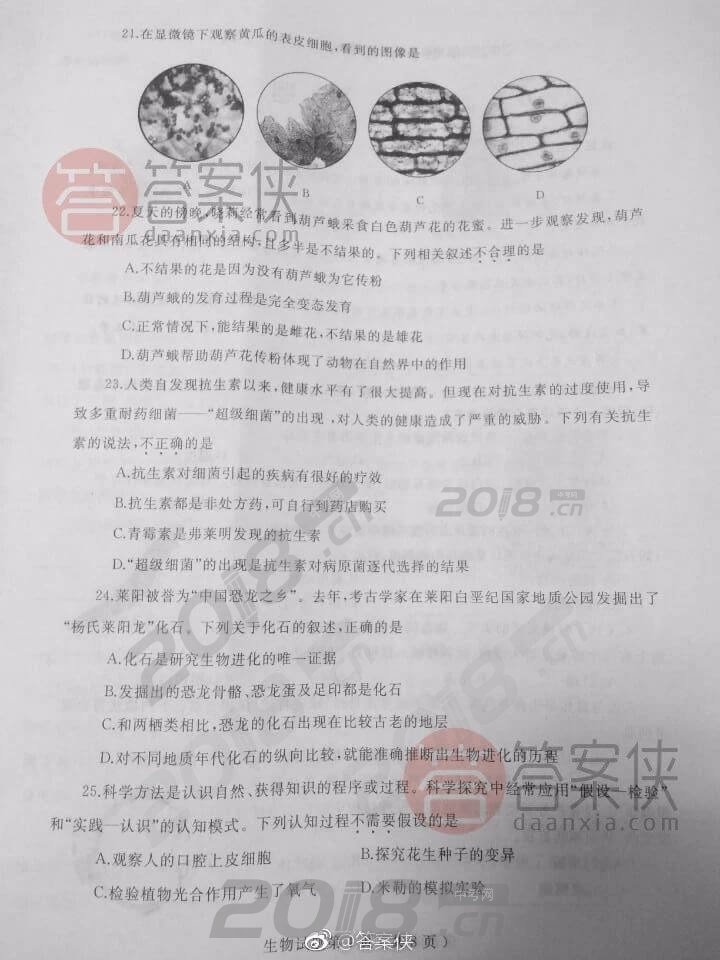 21.在显微镜下观察黄瓜的表皮细胞,看到的图像是
A
B
C
D
22.夏天的傍晚,晓莉经常看到葫芦蛾采食白色葫芦花的花蜜。进一步观察发现,葫芦
花和南瓜花具有相同的结构,且多半是不结果的。下列相关叙述不合理的是
A.不结果的花是因为没有葫芦蛾为它传粉
B.葫芦蛾的发育过程是完全变态发育
C.正常情况下,能结果的是雌花,不结果的是雄花
D.葫芦蛾帮助葫芦花传粉体现了动物在自然界中的作用
23.人类自发现抗生素以来,健康水平有了很大提高。但现在对抗生素的过度使用,导
致多重耐药细菌——“超级细菌”的出现,对人类的健康造成了严重的威胁。下列有关抗生
素的说法,不正确的是
A.抗生素对细菌引起的疾病有很好的疗效
B.抗生素都是非处方药,可自行到药店购买
C.青霉素是弗莱明发现的抗生素
D.“超级细菌”的出现是抗生素对病原菌逐代选择的结果
24.莱阳被誉为“中国恐龙之乡”。去年,考古学家在莱阳白垩纪国家地质公园发掘出了
“杨氏莱阳龙”化石。下列关于化石的叙述,正确的是
A.化石是研究生物进化的唯一证据
B.发掘出的恐龙骨骼、恐龙蛋及足印都是化石
C.和两栖类相比,恐龙的化石出现在比较古老的地层
D.对不同地质年代化石的纵向比较,就能准确推断出生物进化的历程
25.科学方法是认识自然、获得知识的程序或过程。科学探究中经常应用“假设—检验”
和“实践—认识”的认知模式。下列认知过程不需要假设的是
A.观察人的口腔上皮细胞
B.探究花生种子的变异
C.检验植物光合作用产生了氧气
D.米勒的模拟实验
生物试 第 8页)
@答案侠
答 答案侠
daanxia.com
2018.cn
中考网
2018.cn
2018.cn
答 答案侠
daanxia.com
2018.cn
中考网